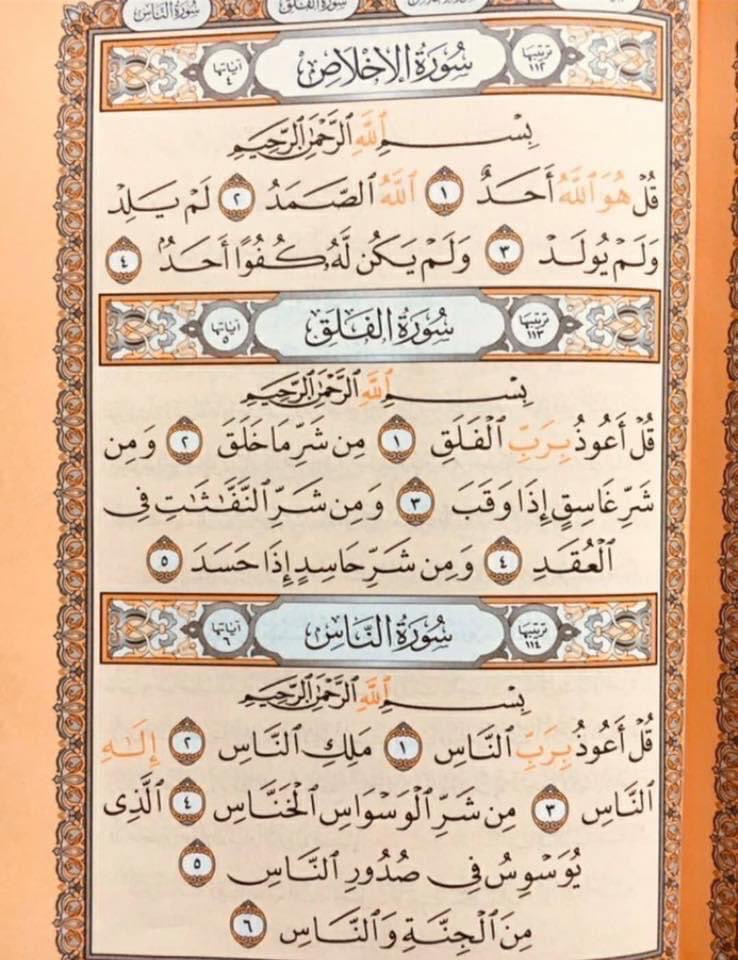 سُورَةُ النَّاسِ
سُورَةُ الفَلَقِ
تَرتيبُهَا ١١٢ سُورَةُ الإِخْلَاصِ آيَاتُهَا ٤
بِسْمِ ٱللَّهِ ٱلرَّحْمَٰنِ ٱلرَّحِيمِ
قُلْ هُوَ ٱللَّهُ أَحَدٌ ١ ٱللَّهُ ٱلصَّمَدُ ٢ لَمْ يَلِدْ
وَلَمْ يُولَدْ ٣ وَلَمْ يَكُن لَّهُۥ كُفُوًا أَحَدٌۢ ٤
تَرتيبُهَا ١١٣ سُورَةُ الفَلَقِ آيَاتُهَا ٥
بِسْمِ ٱللَّهِ ٱلرَّحْمَٰنِ ٱلرَّحِيمِ
قُلْ أَعُوذُ بِرَبِّ ٱلْفَلَقِ ١ مِن شَرِّ مَا خَلَقَ ٢ وَمِن
شَرِّ غَاسِقٍ إِذَا وَقَبَ ٣ وَمِن شَرِّ ٱلنَّفَّٰثَٰتِ فِى
ٱلْعُقَدِ ٤ وَمِن شَرِّ حَاسِدٍ إِذَا حَسَدَ ٥
تَرتيبُهَا ١١٤ سُورَةُ النَّاسِ آيَاتُهَا ٦
بِسْمِ ٱللَّهِ ٱلرَّحْمَٰنِ ٱلرَّحِيمِ
قُلْ أَعُوذُ بِرَبِّ ٱلنَّاسِ ١ مَلِكِ ٱلنَّاسِ ٢ إِلَٰهِ
ٱلنَّاسِ ٣ مِن شَرِّ ٱلْوَسْوَاسِ ٱلْخَنَّاسِ ٤ ٱلَّذِى
يُوَسْوِسُ فِى صُدُورِ ٱلنَّاسِ ٥
مِنَ ٱلْجِنَّةِ وَٱلنَّاسِ ٦